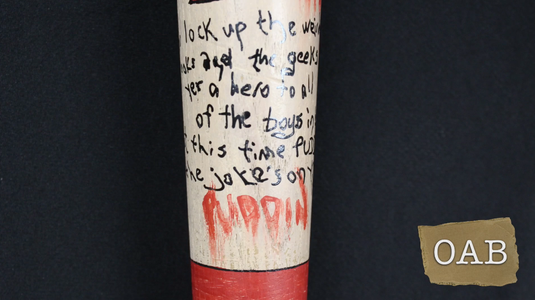 lock up the wei
aks and the geeks
yer a hero to all
of the boys in
this time PUD
he joke's on y
PUDDIN
OAB